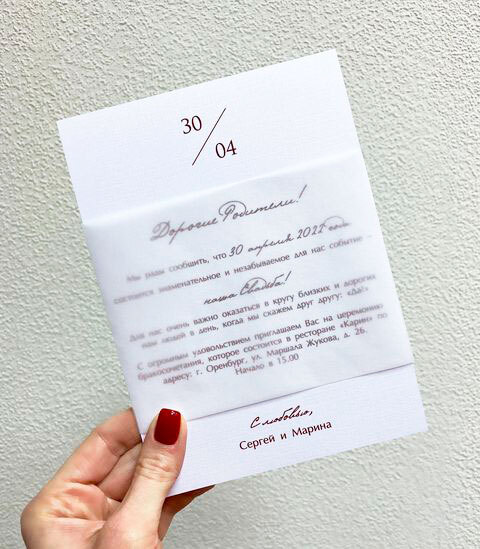 30
04
Дорогие Родители!
Мы рады сообщить, что 30 апреля 2022 года
состоится знаменательное и незабываемое для нас событие ...
наша Свадьба!
Для нас очень важно оказаться в кругу близких и дорогих
нам людей в день, когда мы скажем друг другу: «Да!»
С огромным удовольствием приглашаем Вас на церемонию
бракосочетания, которое состоится в ресторане «Карин» по
адресу: г. Оренбург, ул. Маршала Жукова, д. 26.
Начало в 15.00
С любовью,
Сергей и Марина